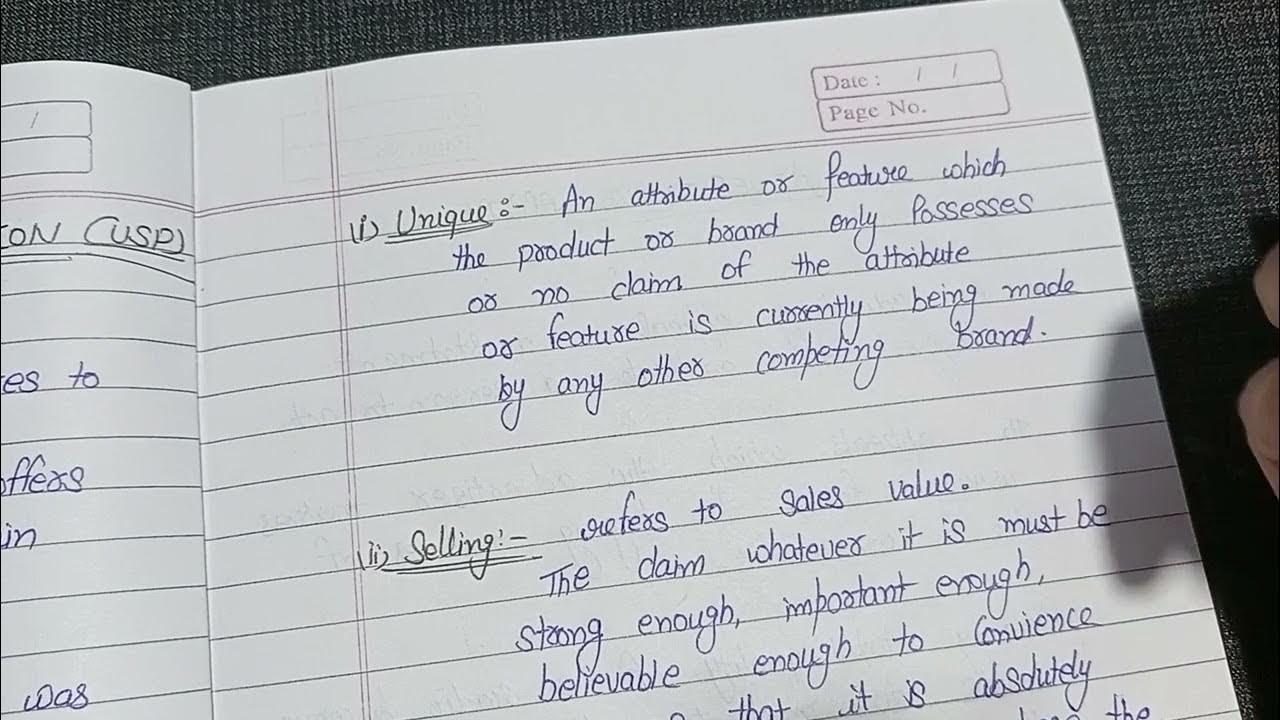 /
ION (USP)
es to
offers
in
was
Date : / /
Page No.
(i) Unique :- An attribute or feature which
the product or brand only Possesses
or no claim of the attribute
or feature is currently being made
by any other competing brand.
(ii) Selling :- refers to sales value.
The claim whatever it is must be
strong enough, important enough,
believable enough to Convience
that it is absolutely
the